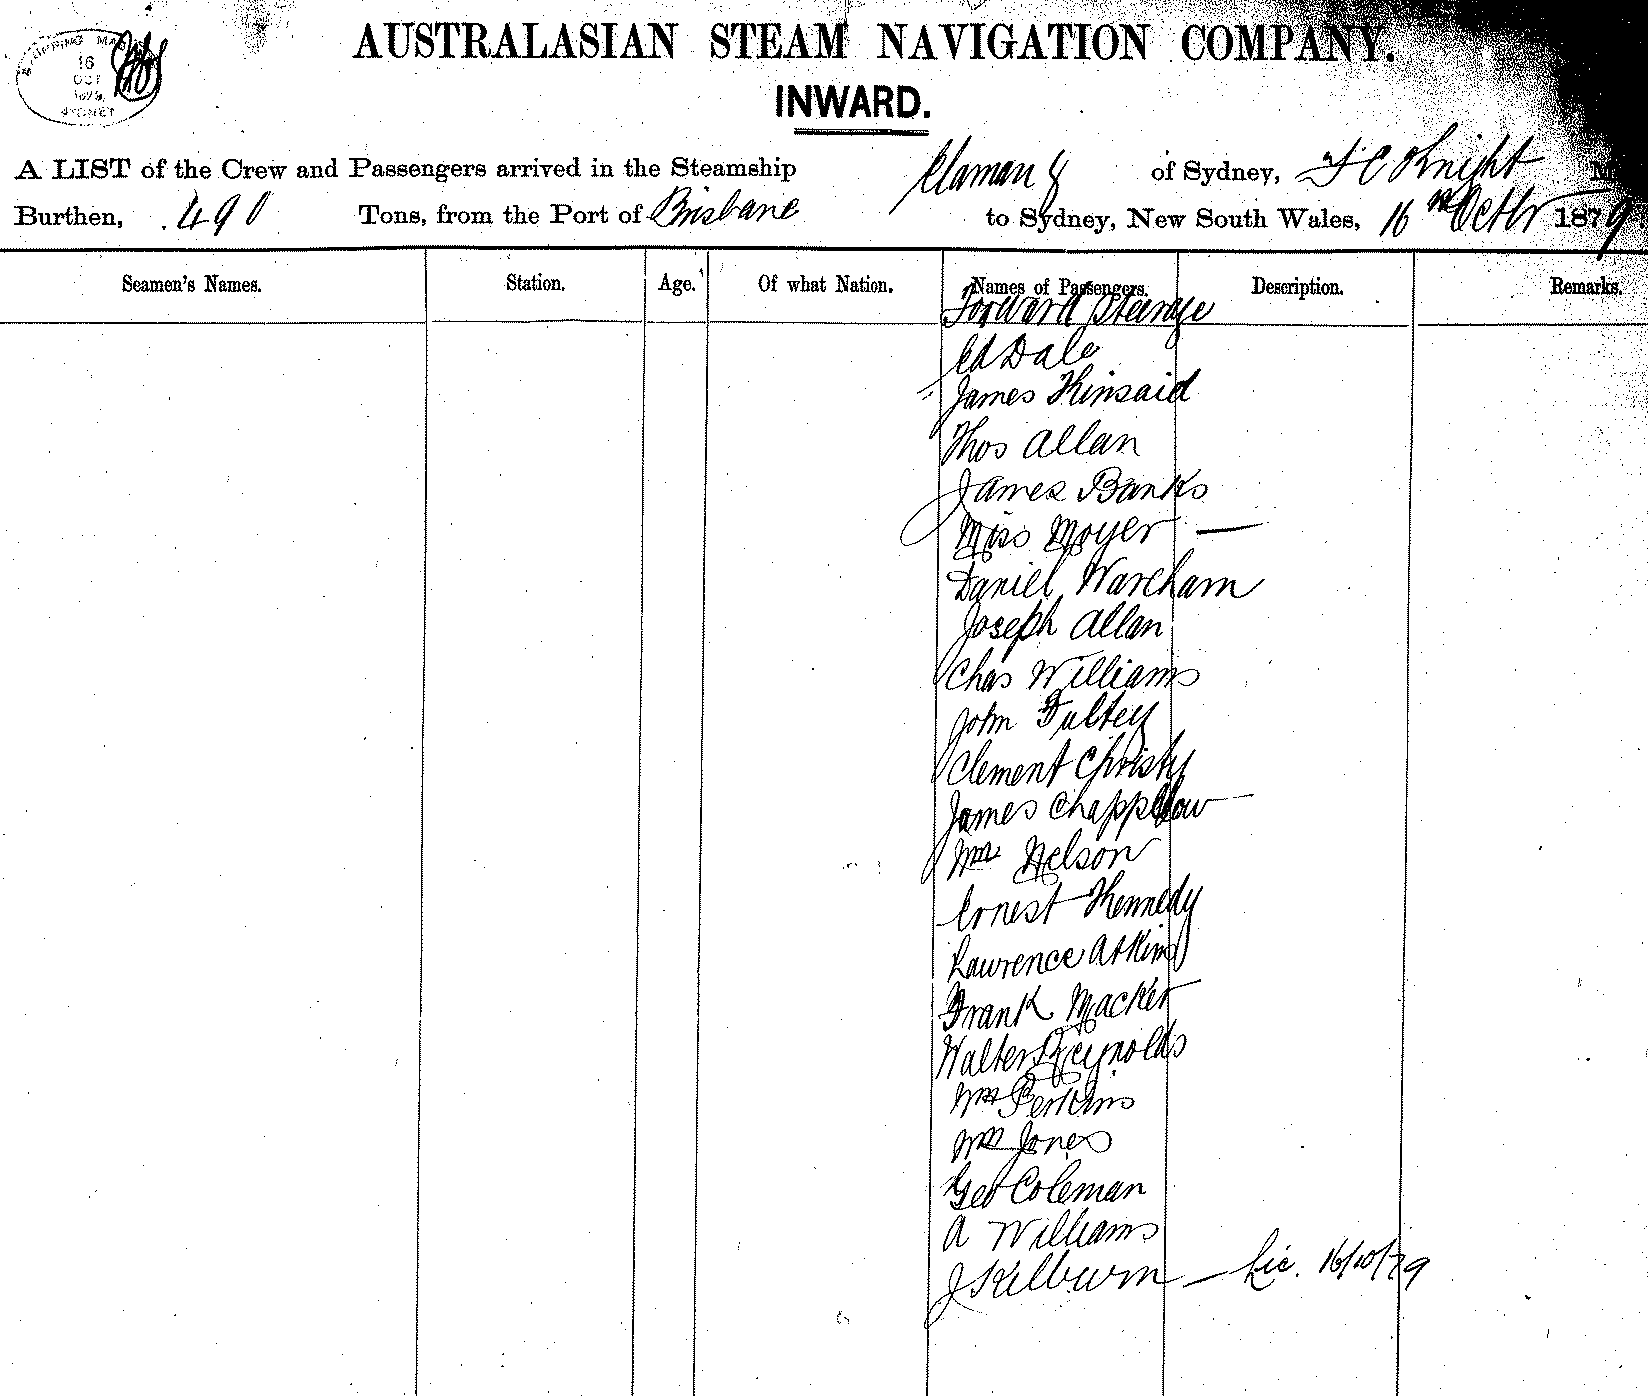 SHIPPING MA
16
OCT
1879
SYDNEY
AUSTRALASIAN STEAM NAVIGATION COMPANY.
INWARD.
A LIST of the Crew and Passengers arrived in the Steamship of Sydney, Knight
Burthen, 490 Tons, from the Port of Brisbane to Sydney, New South Wales, 16th Octbr 1879.
Seamen's Names. Station. Age. Of what Nation. Names of Passengers. Description. Remarks.
Forward Steerage
Ed Dale
James Kinsaid
Thos Allan
James Banks
Miss Moyer —
Daniel Wareham
Joseph Allan
Chas Williams
John Fultey
Clement Christy
James Chapplow
Nelson
Ernest Kennedy
Lawrence Atkins
Frank Macker
Walter Reynolds
Perkins
Jones
Geo Coleman
A Williams
J Kilburn — Lic. 16/10/79